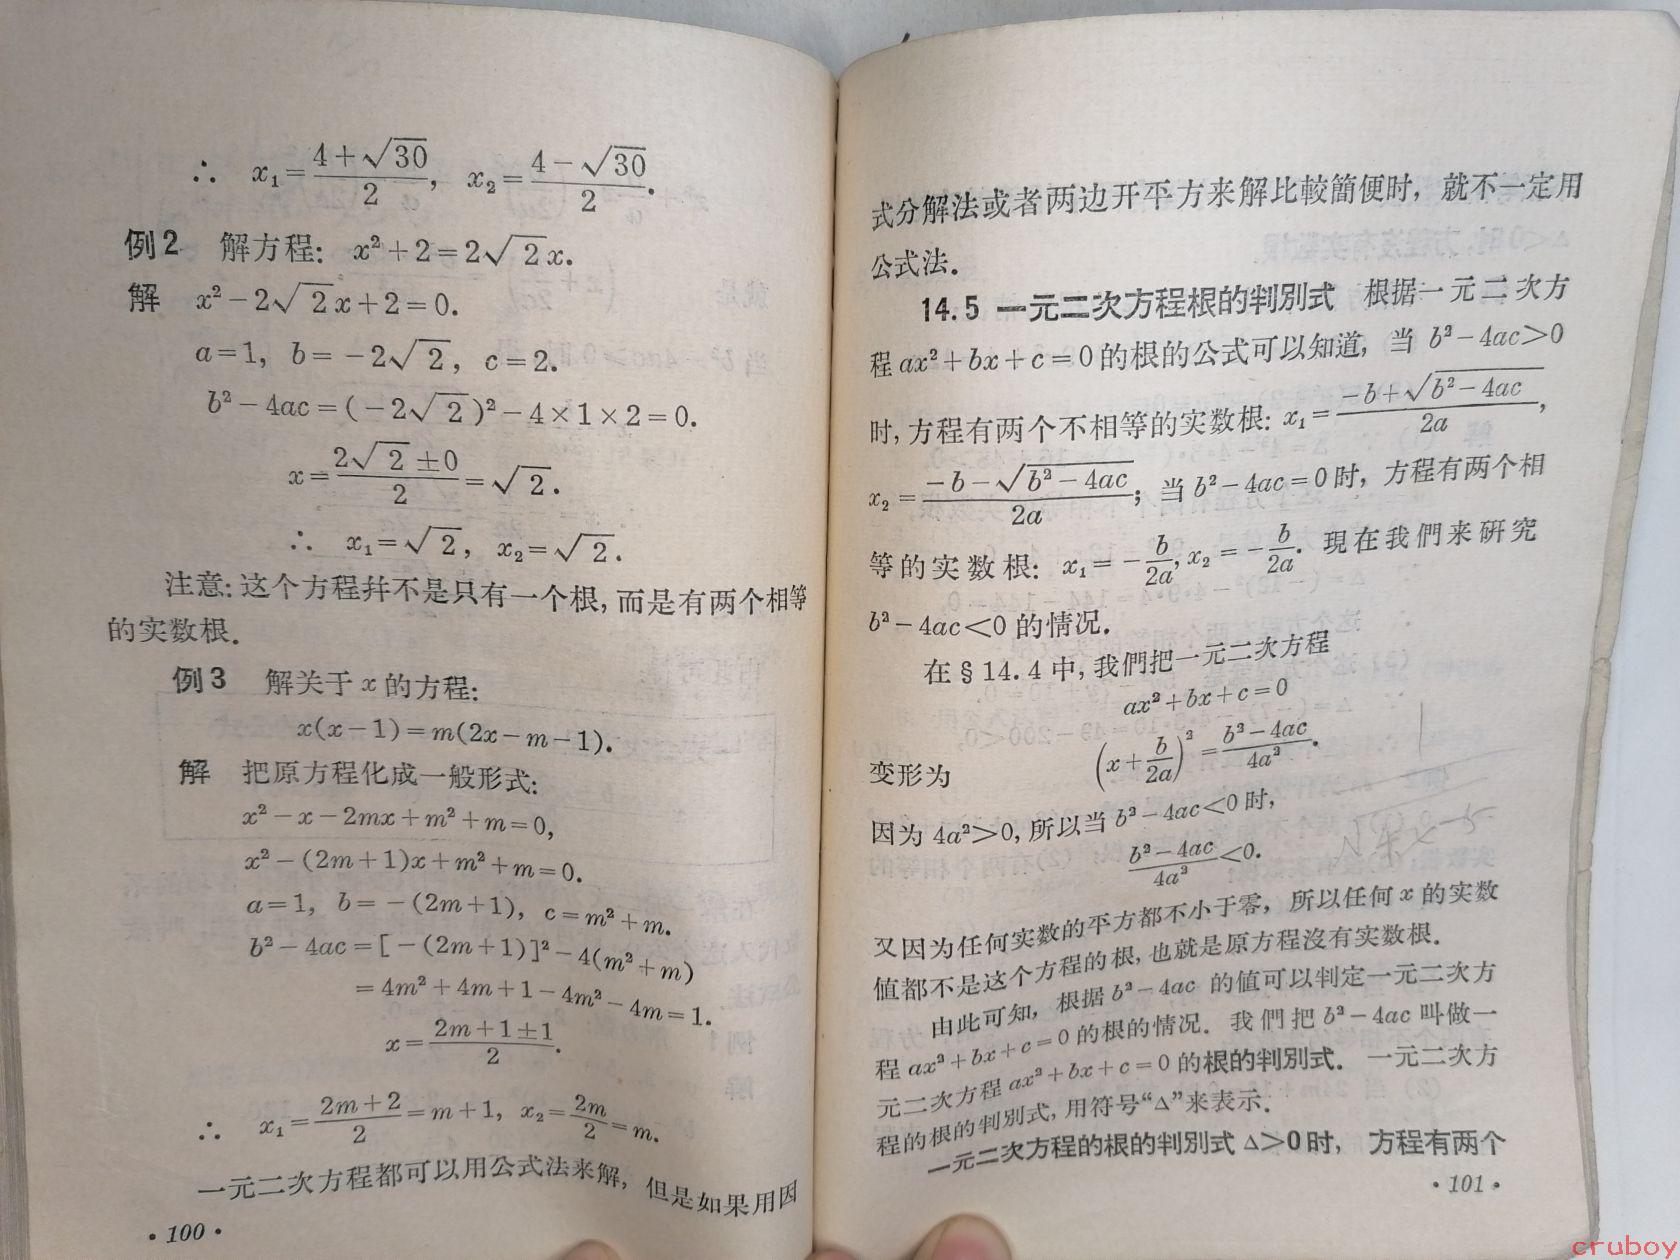 ∴ x₁=(4+√30)/2, x₂=(4-√30)/2.
例2 解方程: x²+2=2√2x.
解 x²-2√2x+2=0.
a=1, b=-2√2, c=2.
b²-4ac=(-2√2)²-4×1×2=0.
x=(2√2±0)/2=√2.
∴ x₁=√2, x₂=√2.
注意:这个方程幷不是只有一个根,而是有两个相等
的实数根.
例3 解关于x的方程:
x(x-1)=m(2x-m-1).
解 把原方程化成一般形式:
x²-x-2mx+m²+m=0,
x²-(2m+1)x+m²+m=0.
a=1, b=-(2m+1), c=m²+m.
b²-4ac=[-(2m+1)]²-4(m²+m)
=4m²+4m+1-4m²-4m=1.
x=(2m+1±1)/2.
∴ x₁=(2m+2)/2=m+1, x₂=2m/2=m.
一元二次方程都可以用公式法来解,但是如果用因
·100·
式分解法或者两边开平方来解比較簡便时,就不一定用
公式法.
14.5 一元二次方程根的判別式 根据一元二次方
程ax²+bx+c=0的根的公式可以知道,当b²-4ac>0
时,方程有两个不相等的实数根: x₁=(-b+√(b²-4ac))/2a,
x₂=(-b-√(b²-4ac))/2a; 当b²-4ac=0时,方程有两个相
等的实数根: x₁=-b/2a, x₂=-b/2a. 現在我們来研究
b²-4ac<0的情况.
在§14.4中,我們把一元二次方程
ax²+bx+c=0
变形为 (x+b/2a)²=(b²-4ac)/4a².
因为4a²>0,所以当b²-4ac<0时,
(b²-4ac)/4a²<0.
又因为任何实数的平方都不小于零,所以任何x的实数
値都不是这个方程的根,也就是原方程沒有实数根.
由此可知,根据b²-4ac的値可以判定一元二次方
程ax²+bx+c=0的根的情况.我們把b²-4ac叫做一
元二次方程ax²+bx+c=0的根的判別式.一元二次方
程的根的判別式,用符号“△”来表示.
一元二次方程的根的判別式△>0时,方程有两个
·101·
cruboy